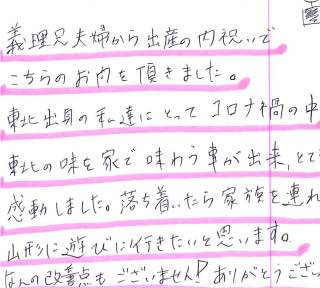 義理兄夫婦から出産の内祝いで
こちらのお肉を頂きました。
東北出身の私達にとってコロナ禍の中
東北の味を家で味わう事が出来、とて
感動しました。落ち着いたら家族を連れ
山形に遊びに行きたいと思います。
なんの改善点もございません!ありがとうござい